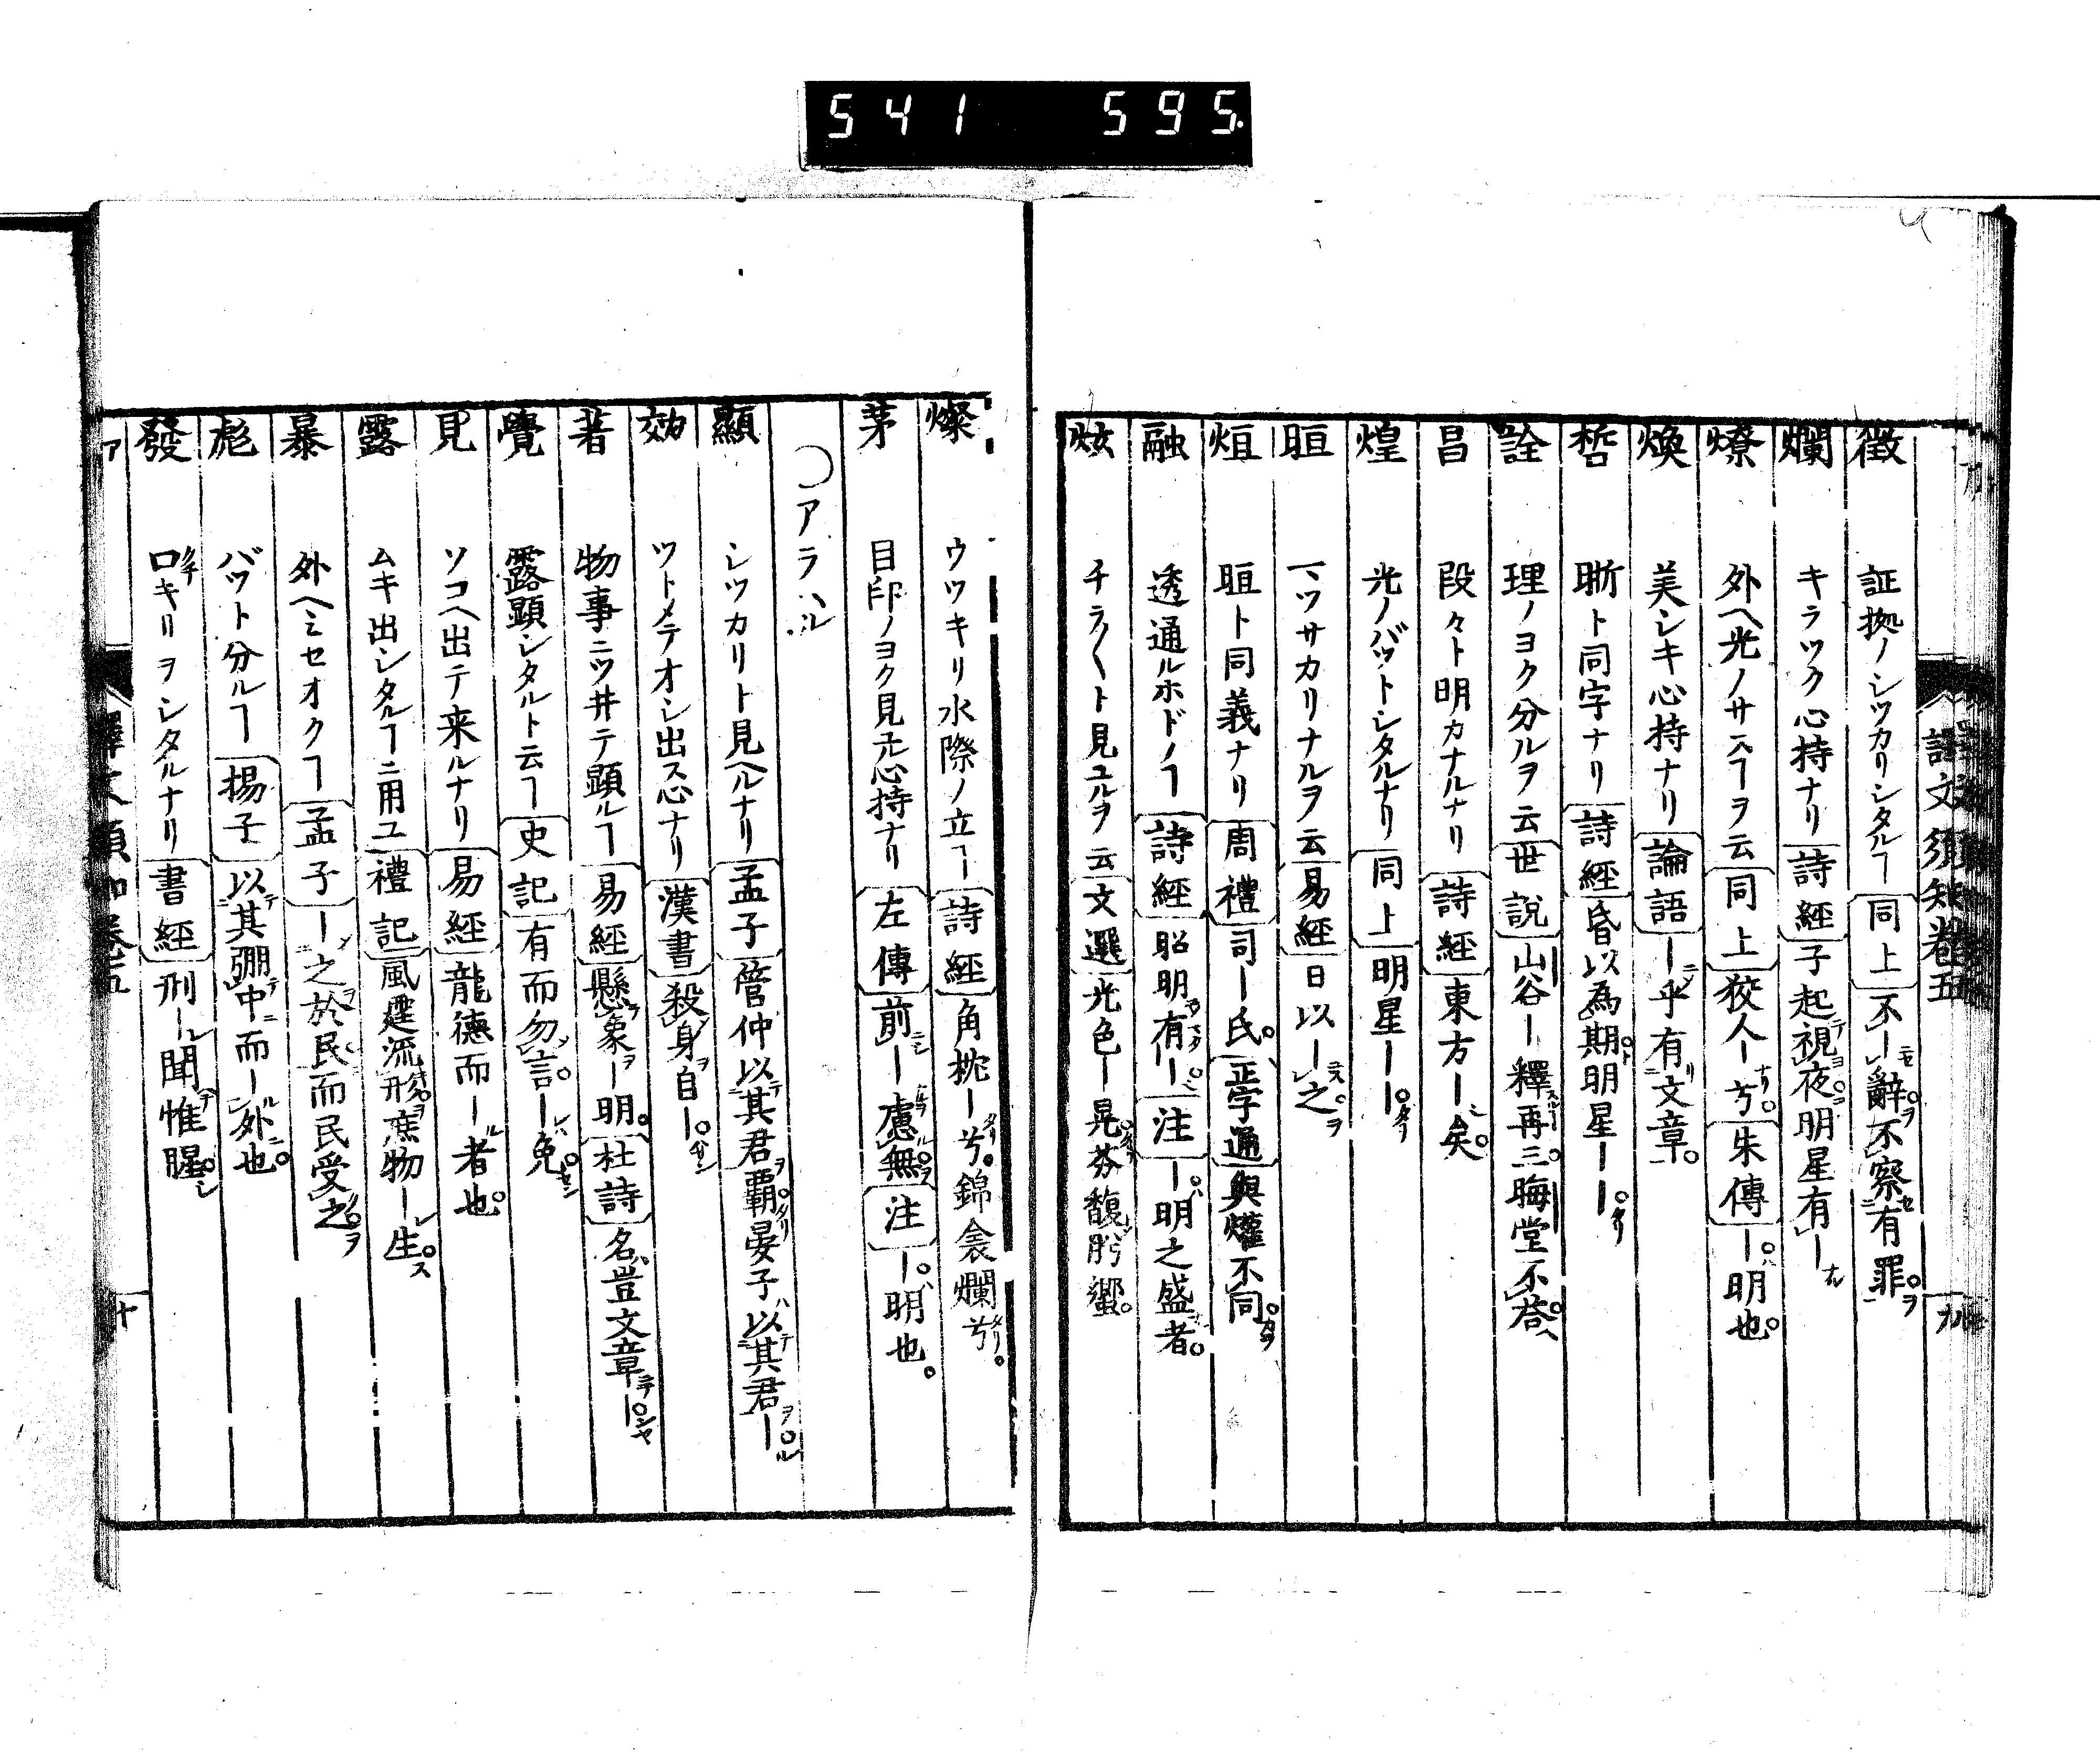 541 595
譯文須知巻五
徴 証拠ノシツカリシタルヿ 同上 不レ辭ヲ不察有罪
爛 キラツク心持ナリ 詩經 子起視夜明星有ー
燎 外ヘ光ノサスヿヲ云 同上 狡人ー兮 朱傳 ー明也
煥 美シキ心持ナリ 論語 ー乎有文章
晢 晣ト同字ナリ 詩經 昏以為期明星ーー
詮 理ノヨク分ルヲ云 世説 山谷ー釋再三晦堂不荅
昌 段々ト明カナルナリ 詩經 東方ー矣
煌 光ノバットシタルナリ 同上 明星ーー
晅 一ツサカリナルヲ云 易經 日以ー之
烜 晅ト同義ナリ 周禮 司ー氏 正字通 與爟不同
融 透通ルホドノヿ 詩經 昭明有ー 注 ー明之盛者
炫 チラ〱ト見ユルヲ云 文選 光色ー晃芬馥肹蠁
燦 ウツキリ水際ノ立ヿ 詩經 角枕ー兮錦衾爛兮
茅 目印ノヨク見元心持ナリ 左傳 前ー慮無 注 ー明也
〇アラハル
顯 シツカリト見ヘルナリ 孟子 管仲以其君覇晏子以其君ー
効 ツトメテオシ出ス心ナリ 漢書 殺身自ー
著 物事ニツ井テ顕ルヿ 易經 懸象ー明 杜詩 名豈文章ー
覺 露顕シタルト云ヿ 史記 有而勿言ー免
見 ソコヘ出テ来ルナリ 易經 龍徳而ー者也
露 ムキ出シタルヿニ用ユ 禮記 風霆流形庶物ー生
暴 外ヘミセオクヿ 孟子 ー之於民而民受之
彪 バツト分ルヿ 揚子 以其弸中而ー外也
發 口キリヲシタルナリ 書經 刑ー聞惟腥
ア 譯文須知巻五 十